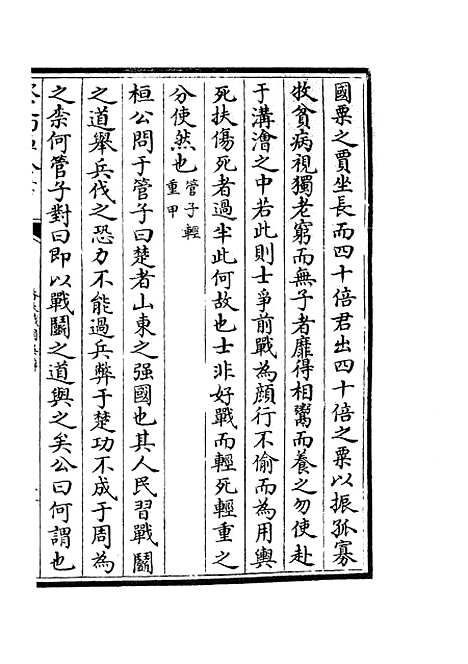 國粟之賈坐長而四十倍君出四十倍之粟以振孤寡
牧貧病視獨老窮而無子者靡得相鬻而養之勿使赴
于溝澮之中若此則士爭前戰為顔行不偷而為用輿
死扶傷死者過半此何故也士非好戰而輕死輕重之
分使然也管子輕
重甲
桓公問于管子曰楚者山東之强國也其人民習戰鬭
之道舉兵伐之恐力不能過兵弊于楚功不成于周為
之柰何管子對曰即以戰鬭之道與之矣公曰何謂也